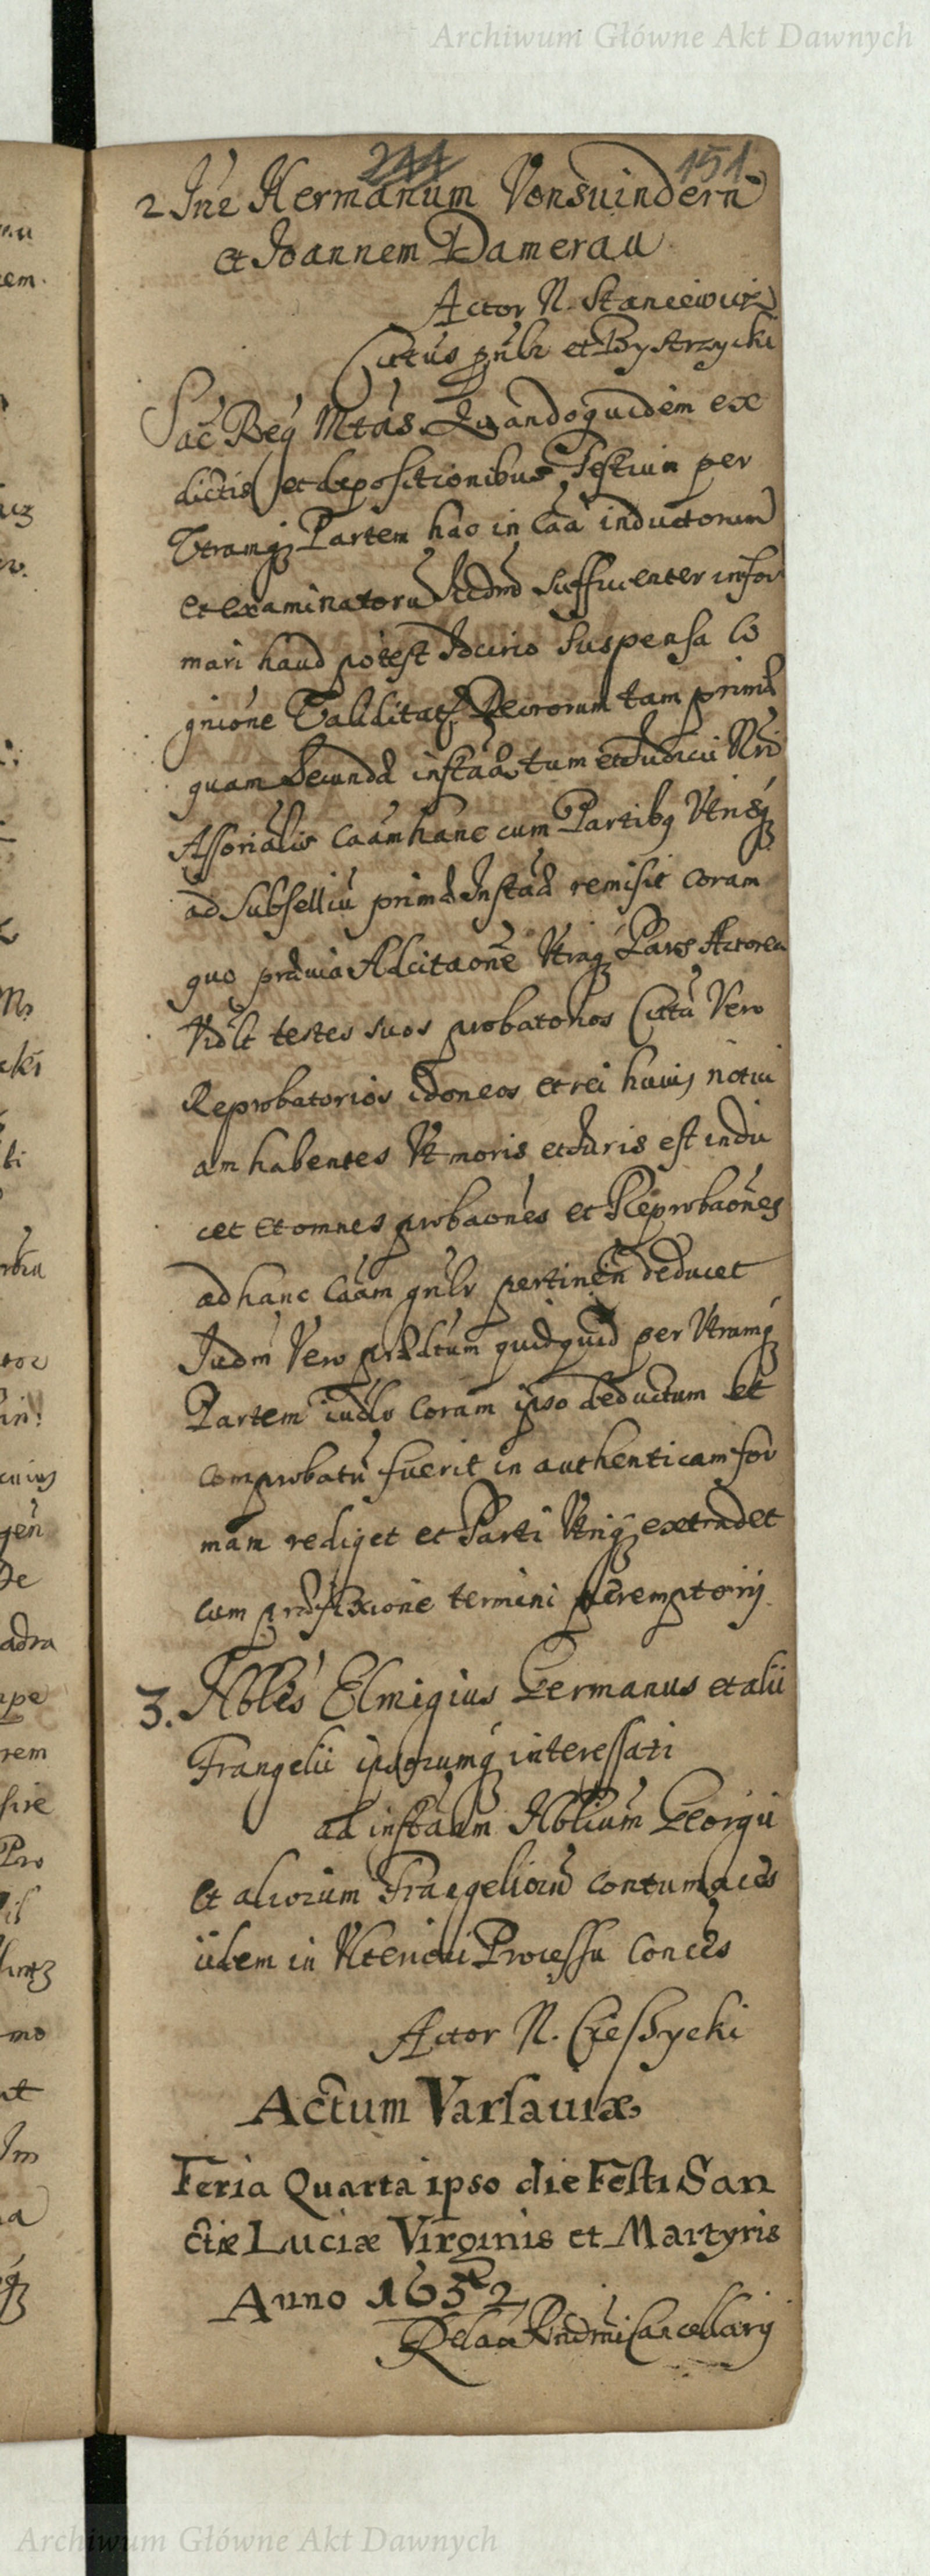 Archiwum Główne Akt Dawnych
244 151
2 Inr Hermanum Vonsuindern
et Ioannem Damerau
Actor N. Staniewicz
Citus pnlr et Bystrzycki
Sac Reg Mtas Quandoquidem ex
dictis et depositionibus Testium per
Utramq Partem hac in Caa inductorum
et examinatoru Iudm sufficienter infor
mari haud potest Idcirco suspensa Co
gnione Validitatis Decretorum tam primae
quam Secundae instaae tum et Iudicii Nri
Assorialis Caam hanc cum Partibq Utrisq
ad Subselliu primae Instaae remisit coram
quo praevia Adcitaone Utraq Pars Actorea
Vidlt testes suos probatorios Citta Vero
Reprobatorios idoneos et rei huius notiti
am habentes Ut moris et Iuris est indu
cet et omnes probaones et Reprobaones
ad hanc Caam gnlr pertinen deducet
Iudm Vero praedtum quidquid per Utramq
Partem iudlr coram ipso deductum et
comprobatu fuerit in authenticam for
mam rediget et Parti Utriq extradet
cum praefixione termini peremptorij
3. Nbles Elmigius Germanus et alii
Frangelii ipsorumq interessati
ad instaam Nblium Georgii
et aliorum Frangeliorum contumaces
iidem in Ulteriori Processu Conces
Actor N. Cieszycki
Actum Varsauiæ
Feria Quarta ipso die Festi San
ctæ Luciæ Virginis et Martyris
Anno 1652
Relaa Rndmi Cancellarij
Archiwum Główne Akt Dawnych